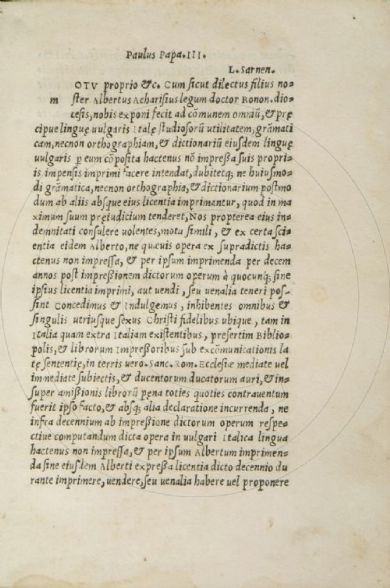 Paulus Papa.III.
L. Sarnen.
OTV proprio &c. Cum sicut dilectus filius no=
m ster Albertus Acharisius legum doctor Bonon. dio=
cesis, nobis exponi fecit ad cōmunem omniū, & prę
cipue linguę uulgaris Italę studiosorū utilitatem, grāmati
cam, necnon orthographiam, & dictionariū eiusdem linguę
uulgaris p eum cōposita hactenus nō impressa suis propri=
is impensis imprimi facere intendat, dubitetq; ne huiusmo=
di grāmatica, necnon orthographia, & dictionarium postmo
dum ab aliis absque eius licentia imprimantur, quod in ma
ximum suum pręiudicium tenderet, Nos propterea eius in=
demnitati consulere uolentes, motu simili, & ex certa sci=
entia eidem Alberto, ne quacuis opera ex supradictis ha=
ctenus non impressa, & per ipsum imprimenda per decem
annos post impreßionem dictorum operum à quocunq; sine
ipsius licentia imprimi, aut uendi, seu uenalia teneri pos=
sint Concedimus & Indulgemus, inhibentes omnibus &
singulis utriusque sexus Christi fidelibus ubique, tam in
Italia quam extra Italiam existentibus, presertim Biblio=
polis, & librorum Impreßoribus sub excōmunicationis la
tę sententię, in terris uero. Sanc. Rom. Ecclesiae mediate uel
immediate subiectis, & ducentorum ducatorum auri, & in=
super amißionis librorū pęna toties quoties contrauentum
fuerit ipso facto, & absq; alia declaratione incurrenda, ne
infra decennium ab impreßione dictorum operum respe=
ctiue computandum dicta opera in uulgari Italica lingua
hactenus non impressa, & per ipsum Albertum imprimen=
da sine eiusdem Alberti expreßa licentia dicto decennio du
rante imprimere, uendere, seu uenalia habere uel proponere